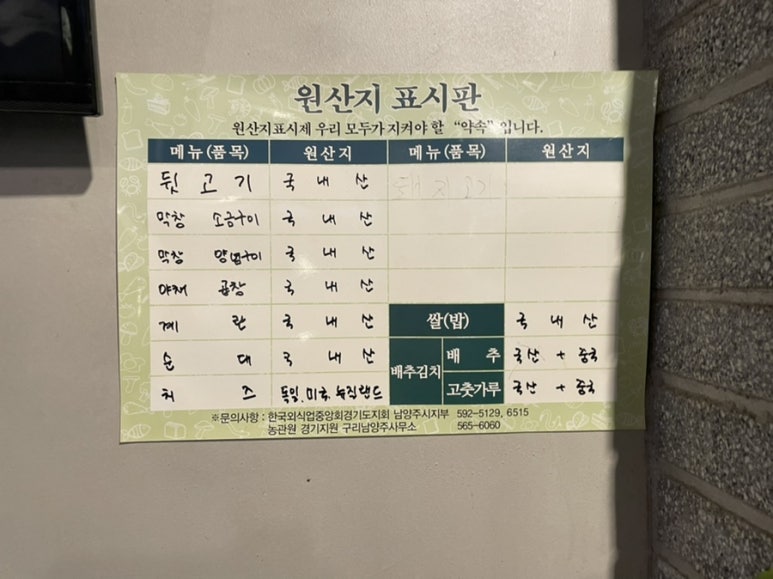 원산지 표시판
원산지표시제 우리 모두가 지켜야 할 “약속”입니다.
메뉴(품목) 원산지 메뉴(품목) 원산지
뒷고기 국내산 돼지고기
막창 소금구이 국내산
막창 양념구이 국내산
야채 곱창 국내산
계란 국내산 쌀(밥) 국내산
순대 국내산 배추김치 배추 국산 + 중국
치즈 독일, 미국, 뉴질랜드 고춧가루 국산 + 중국
※문의사항 : 한국외식업중앙회경기도지회 남양주시지부 592-5129, 6515
농관원 경기지원 구리남양주사무소 565-6060